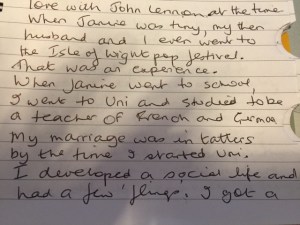 love with John Lennon at the time
When Janine was tiny, my then
husband and I even went to
the Isle of Wight pop festival.
That was an experience.
When Janine went to school,
I went to Uni and studied to be
a teacher of French and German
My marriage was in tatters
by the time I started Uni.
I developed a social life and
had a few 'flings'. I got a